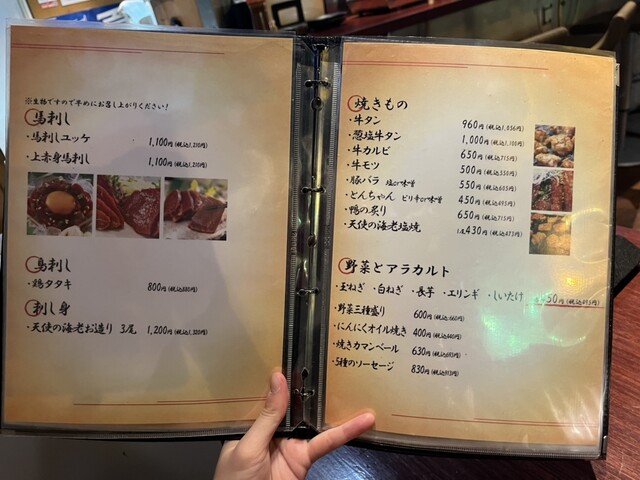 ※生物ですので早めにお召し上がりください！
馬刺し
・馬刺しユッケ 1,100円(税込1,210円)
・上赤身馬刺し 1,100円(税込1,210円)
鳥刺し
・鶏タタキ 800円(税込880円)
刺し身
・天使の海老お造り 3尾 1,200円(税込1,320円)
焼きもの
・牛タン 960円(税込1,056円)
・葱塩牛タン 1,000円(税込1,100円)
・牛カルビ 650円(税込715円)
・牛モツ 500円(税込550円)
・豚バラ 塩or味噌 550円(税込605円)
・とんちゃん ピリ辛or味噌 450円(税込495円)
・鴨の炙り 650円(税込715円)
・天使の海老塩焼 1尾430円(税込473円)
野菜とアラカルト
・玉ねぎ ・白ねぎ ・長芋 ・エリンギ ・しいたけ 各450円(税込495円)
・野菜三種盛り 600円(税込660円)
・にんにくオイル焼き 400円(税込440円)
・焼きカマンベール 630円(税込693円)
・5種のソーセージ 830円(税込913円)